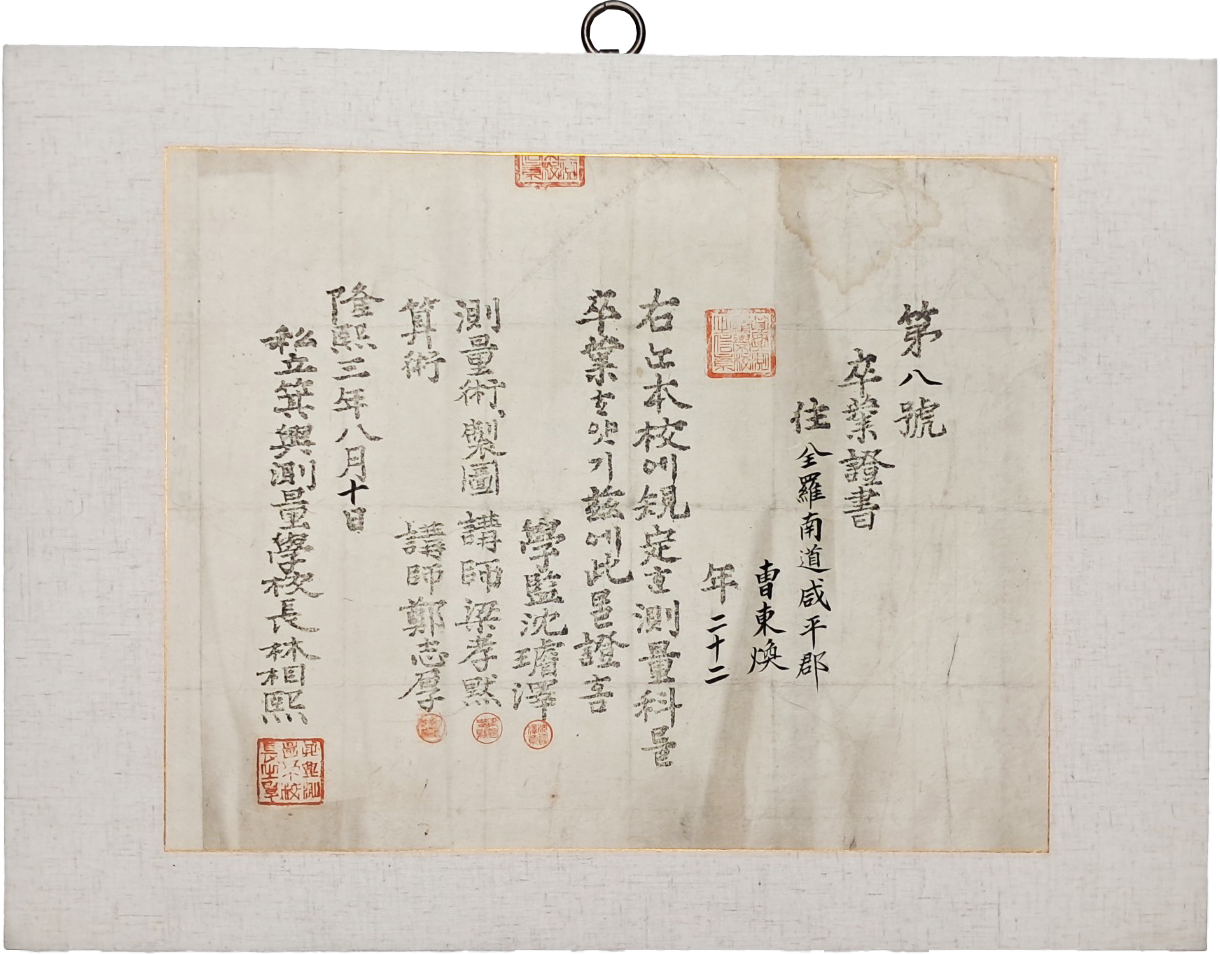 第八號
卒業證書
住 全羅南道咸平郡
曺東煥
年 二十二
右는本校에規定한測量科를
卒業하얏기玆에此를證홈
學監沈璿澤
測量術、製圖 講師梁孝黙
算術 講師鄭志厚
隆熙三年八月十日
私立箕興測量學校長林相熙